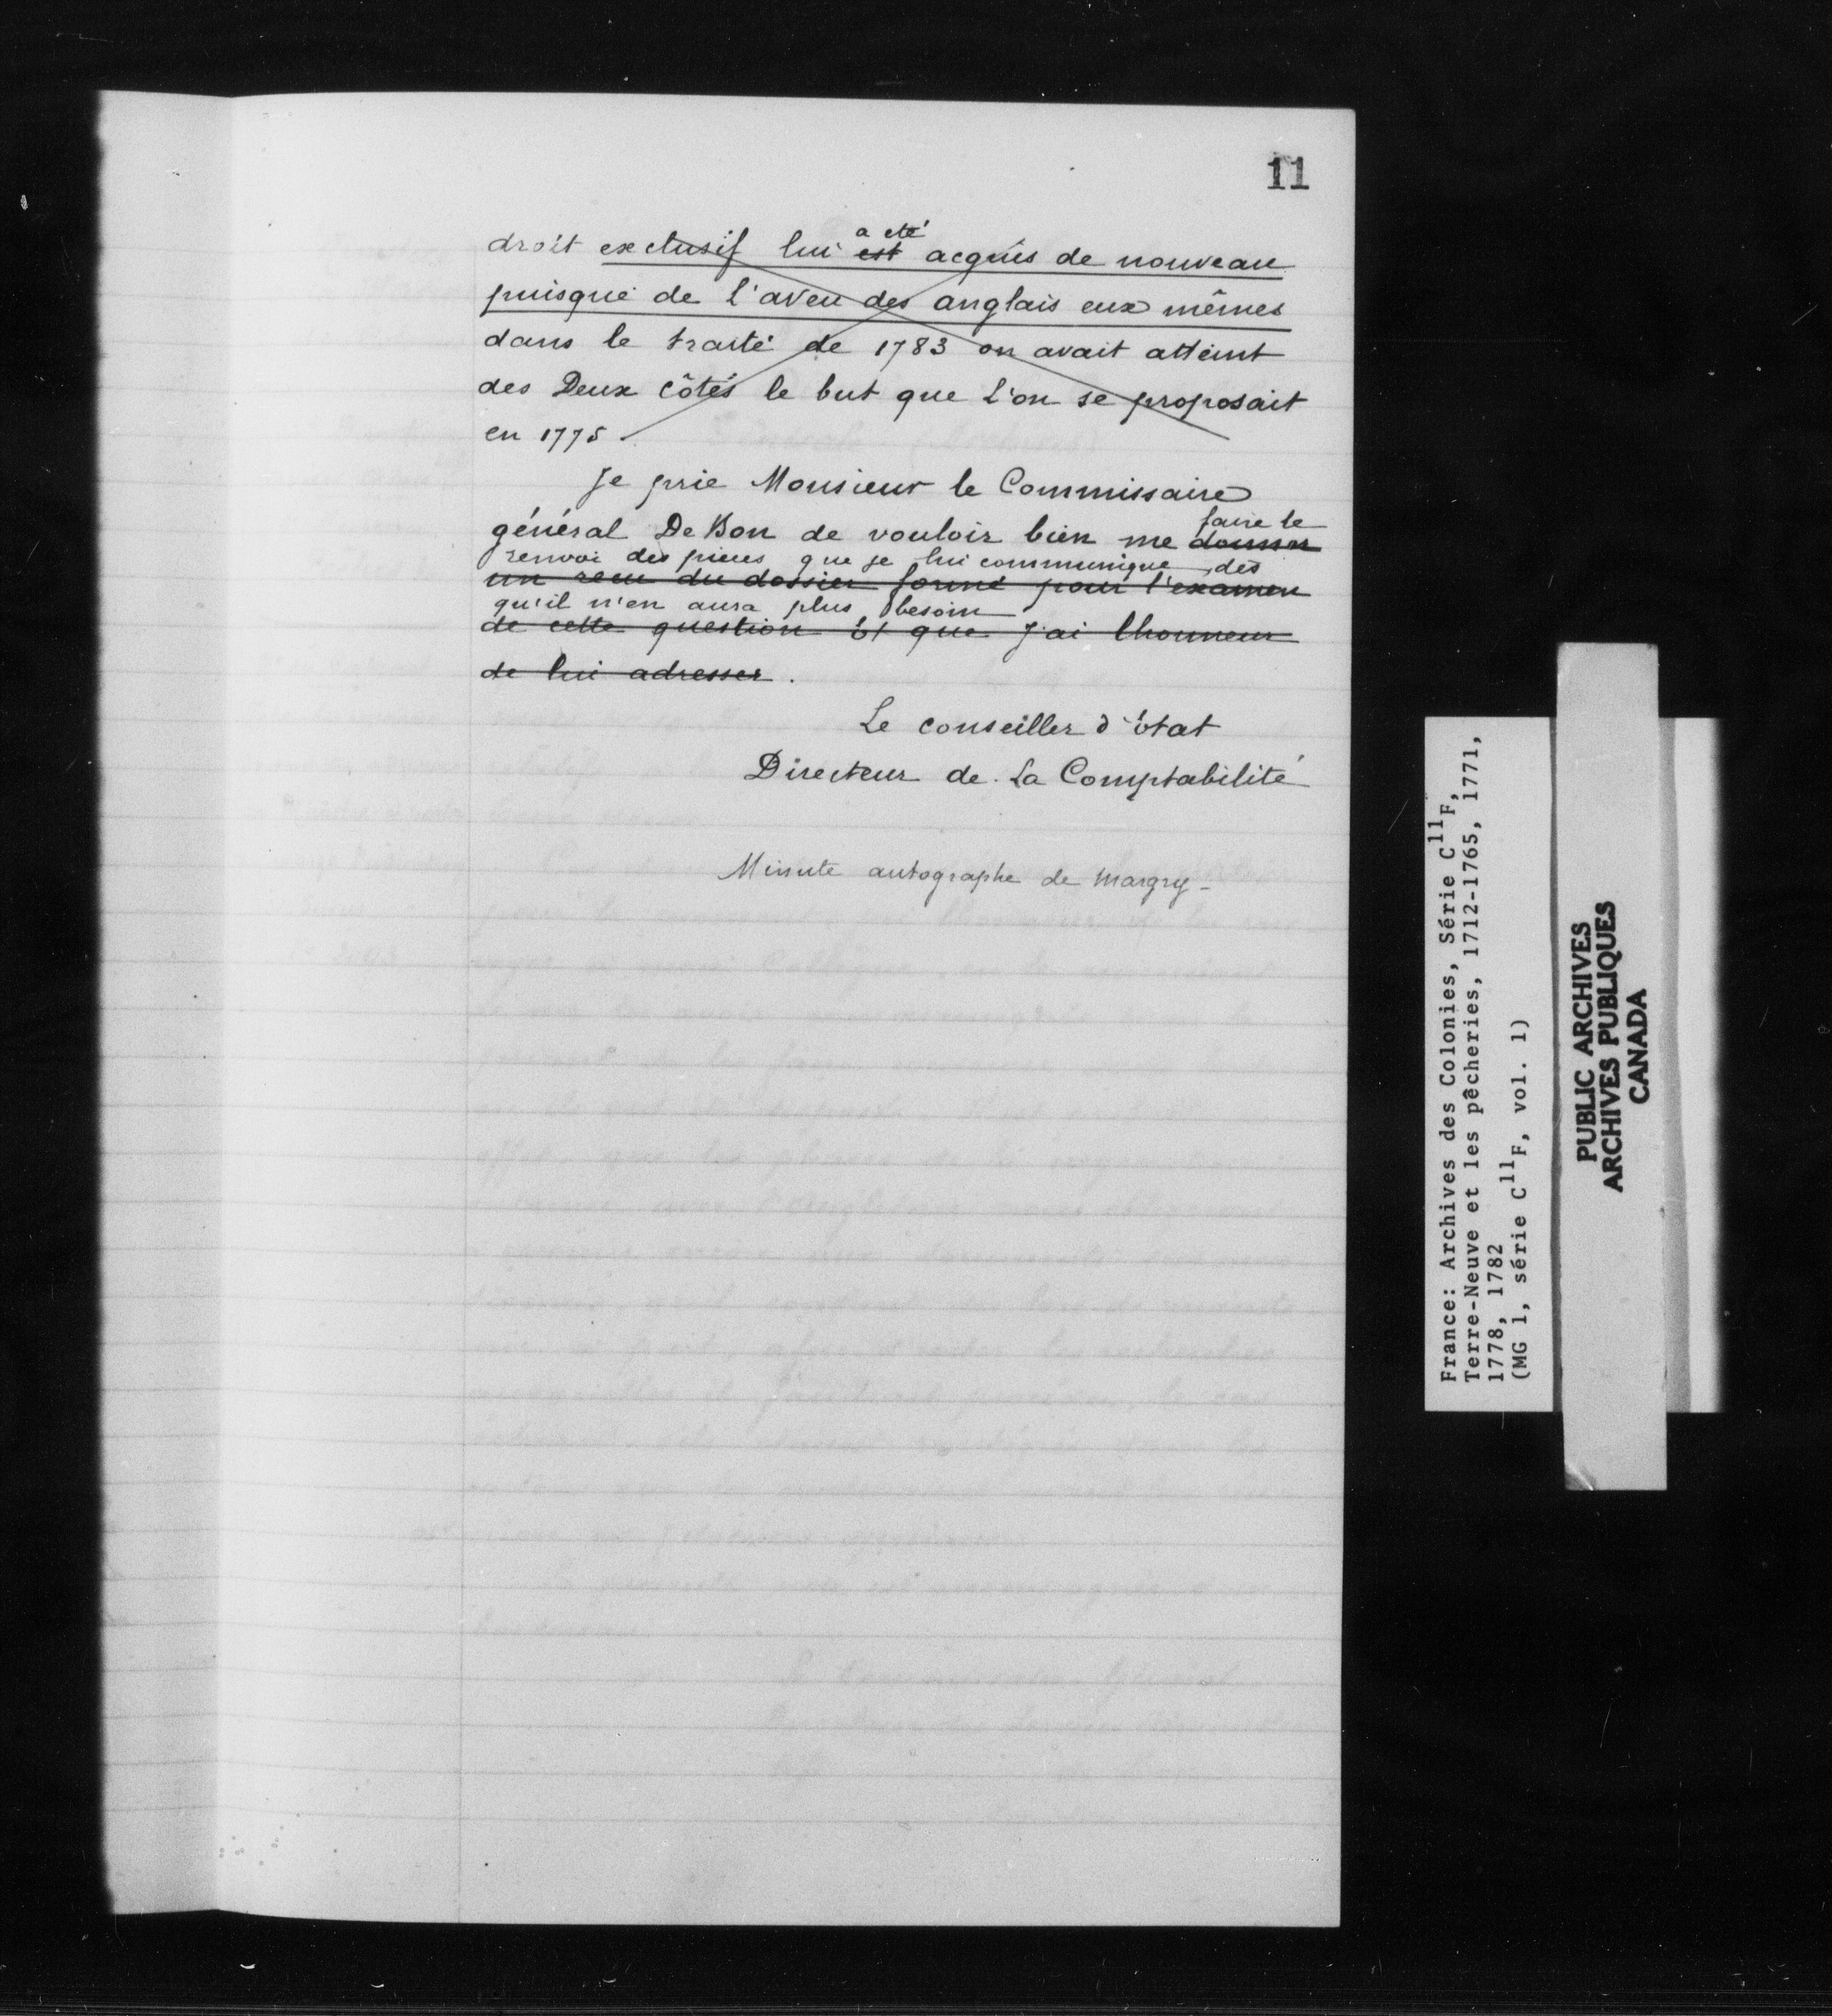 11
droit exclusif lui a été est acquis de nouveau
puisque de l'aveu des anglais eux mêmes
dans le traité de 1783 on avait atteint
des Deux côtés le but que l'on se proposait
en 1775.
Je prie Monsieur le Commissaire
faire le
général De Bon de vouloir bien me donner
renvoi des pièces que je lui communique, dès
un recu du dossier formé pour l'examen
qu'il n'en aura plus besoin
de cette question et que j'ai lhonneur
de lui adresser.
Le conseiller d'état
Directeur de La Comptabilité
Minute autographe de Margry -
France: Archives des Colonies, Série C11F,
Terre-Neuve et les pêcheries, 1712-1765, 1771,
1778, 1782
(MG 1, série C11F, vol. 1)
PUBLIC ARCHIVES
ARCHIVES PUBLIQUES
CANADA